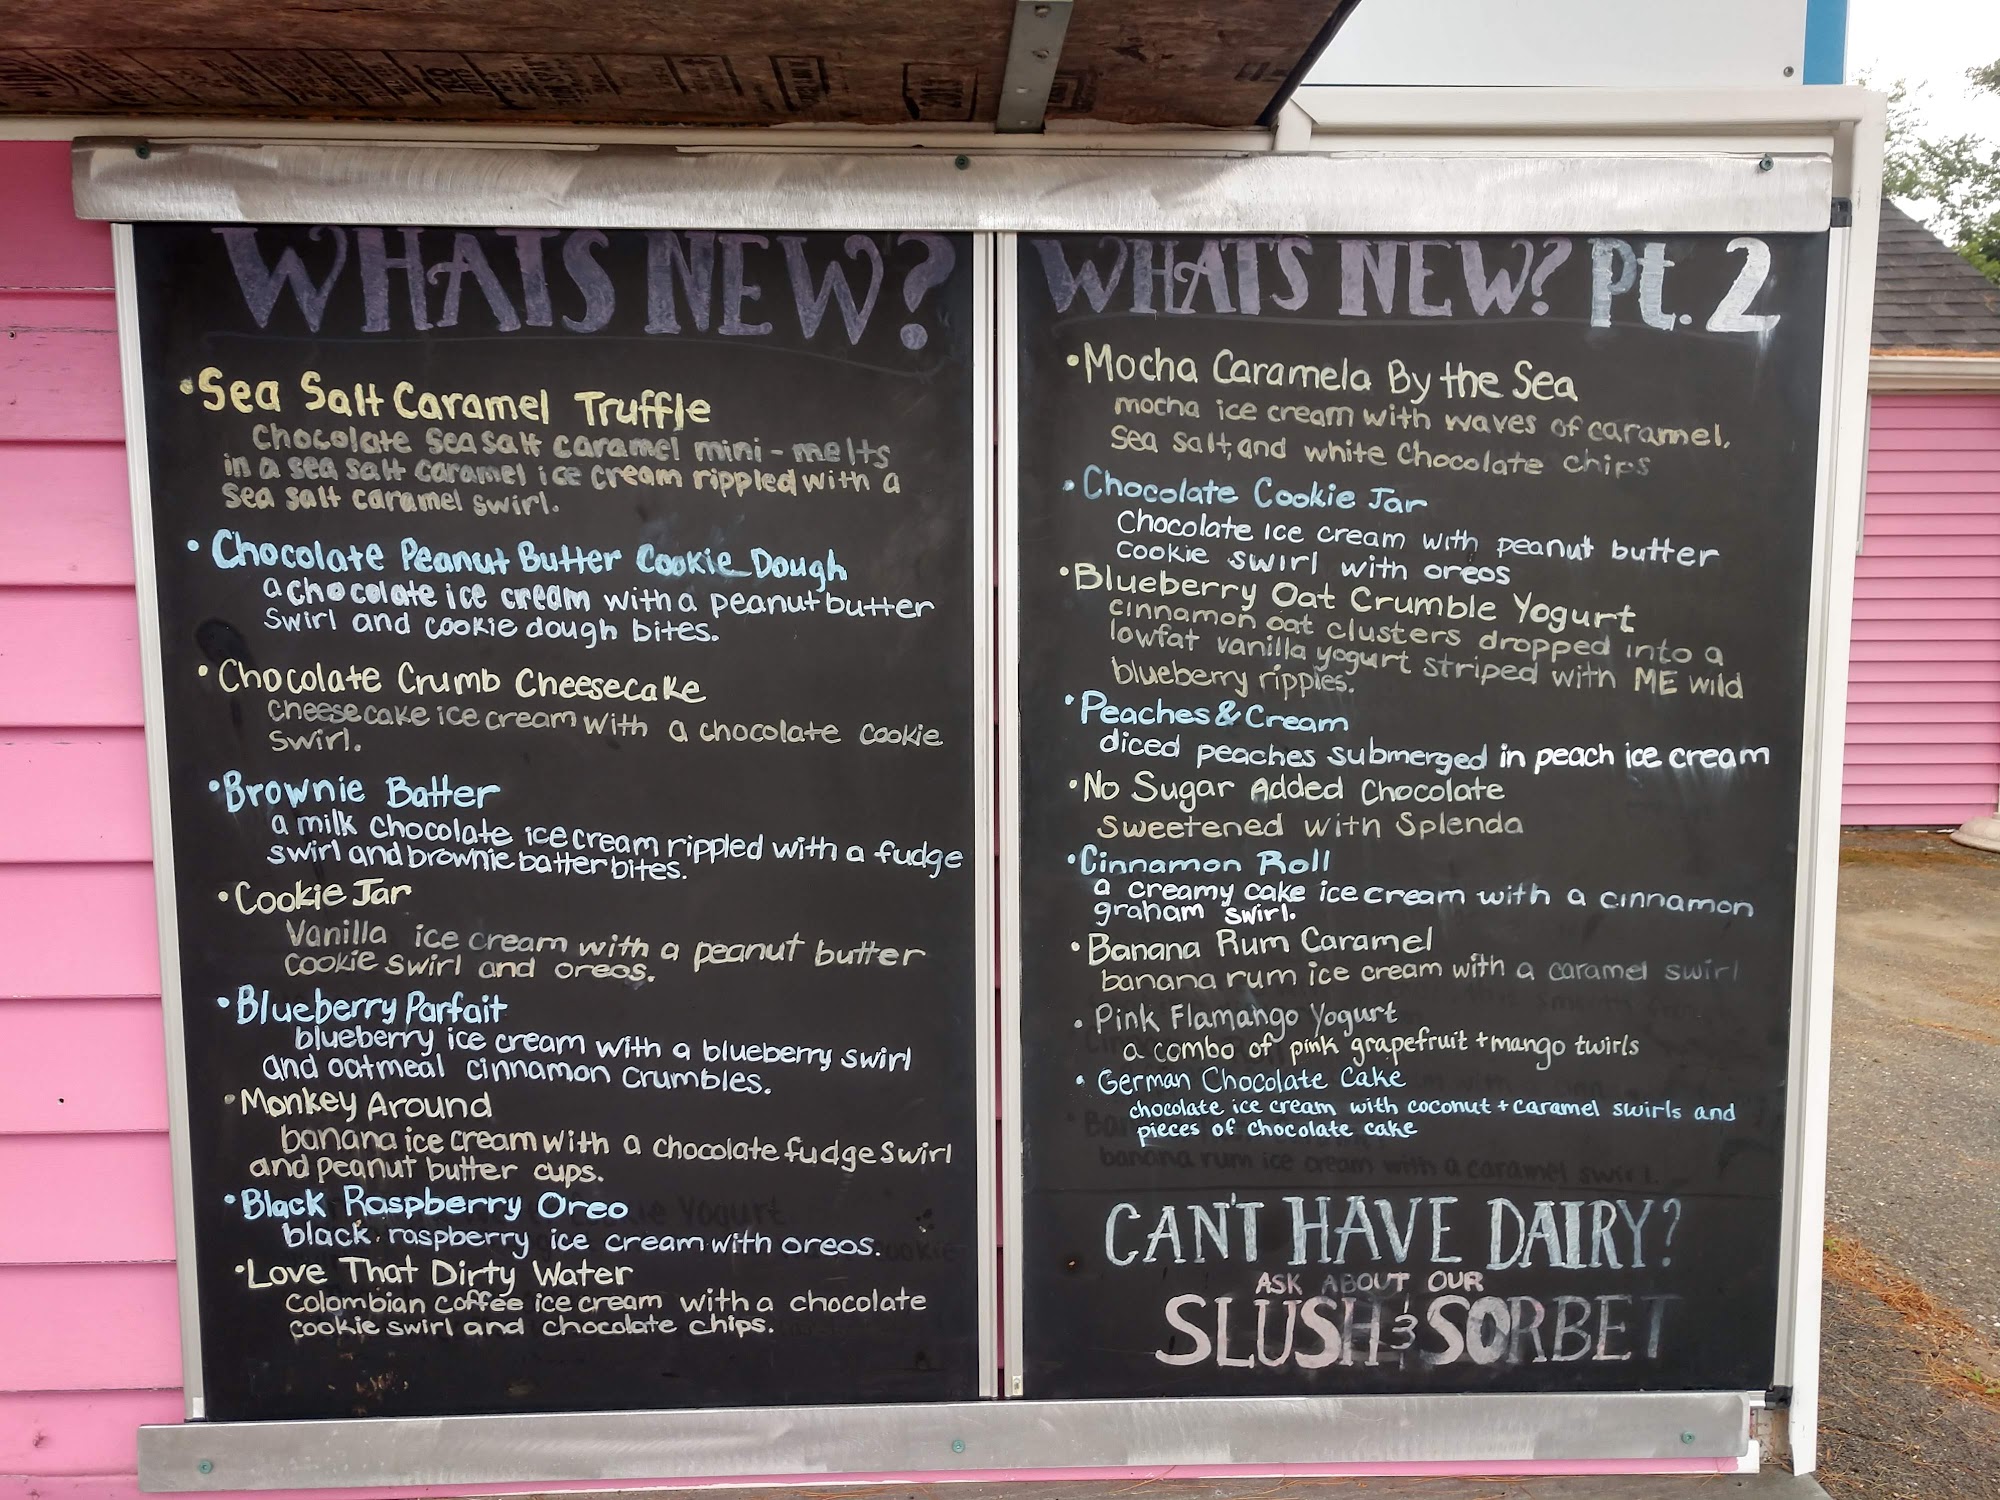 WHATS NEW?
•Sea Salt Caramel Truffle
Chocolate sea salt caramel mini-melts
in a sea salt caramel ice cream rippled with a
sea salt caramel swirl.
•Chocolate Peanut Butter Cookie Dough
a chocolate ice cream with a peanut butter
swirl and cookie dough bites.
•Chocolate Crumb Cheesecake
cheesecake ice cream with a chocolate cookie
swirl.
•Brownie Batter
a milk chocolate ice cream rippled with a fudge
swirl and brownie batter bites.
•Cookie Jar
Vanilla ice cream with a peanut butter
cookie swirl and oreos.
•Blueberry Parfait
blueberry ice cream with a blueberry swirl
and oatmeal cinnamon crumbles.
•Monkey Around
banana ice cream with a chocolate fudge swirl
and peanut butter cups.
•Black Raspberry Oreo
black raspberry ice cream with oreos.
•Love That Dirty Water
Colombian coffee ice cream with a chocolate
cookie swirl and chocolate chips.
WHAT'S NEW? Pt. 2
•Mocha Caramela By the Sea
mocha ice cream with waves of caramel,
sea salt, and white chocolate chips
•Chocolate Cookie Jar
Chocolate ice cream with peanut butter
cookie swirl with oreos
•Blueberry Oat Crumble Yogurt
cinnamon oat clusters dropped into a
lowfat vanilla yogurt striped with ME wild
blueberry ripples.
•Peaches & Cream
diced peaches submerged in peach ice cream
•No Sugar Added Chocolate
sweetened with Splenda
•Cinnamon Roll
a creamy cake ice cream with a cinnamon
graham swirl.
•Banana Rum Caramel
banana rum ice cream with a caramel swirl
•Pink Flamango Yogurt
a combo of pink grapefruit + mango twirls
•German Chocolate Cake
chocolate ice cream with coconut + caramel swirls and
pieces of chocolate cake
banana rum ice cream with a caramel swirl.
CAN'T HAVE DAIRY?
ASK ABOUT OUR
SLUSH & SORBET